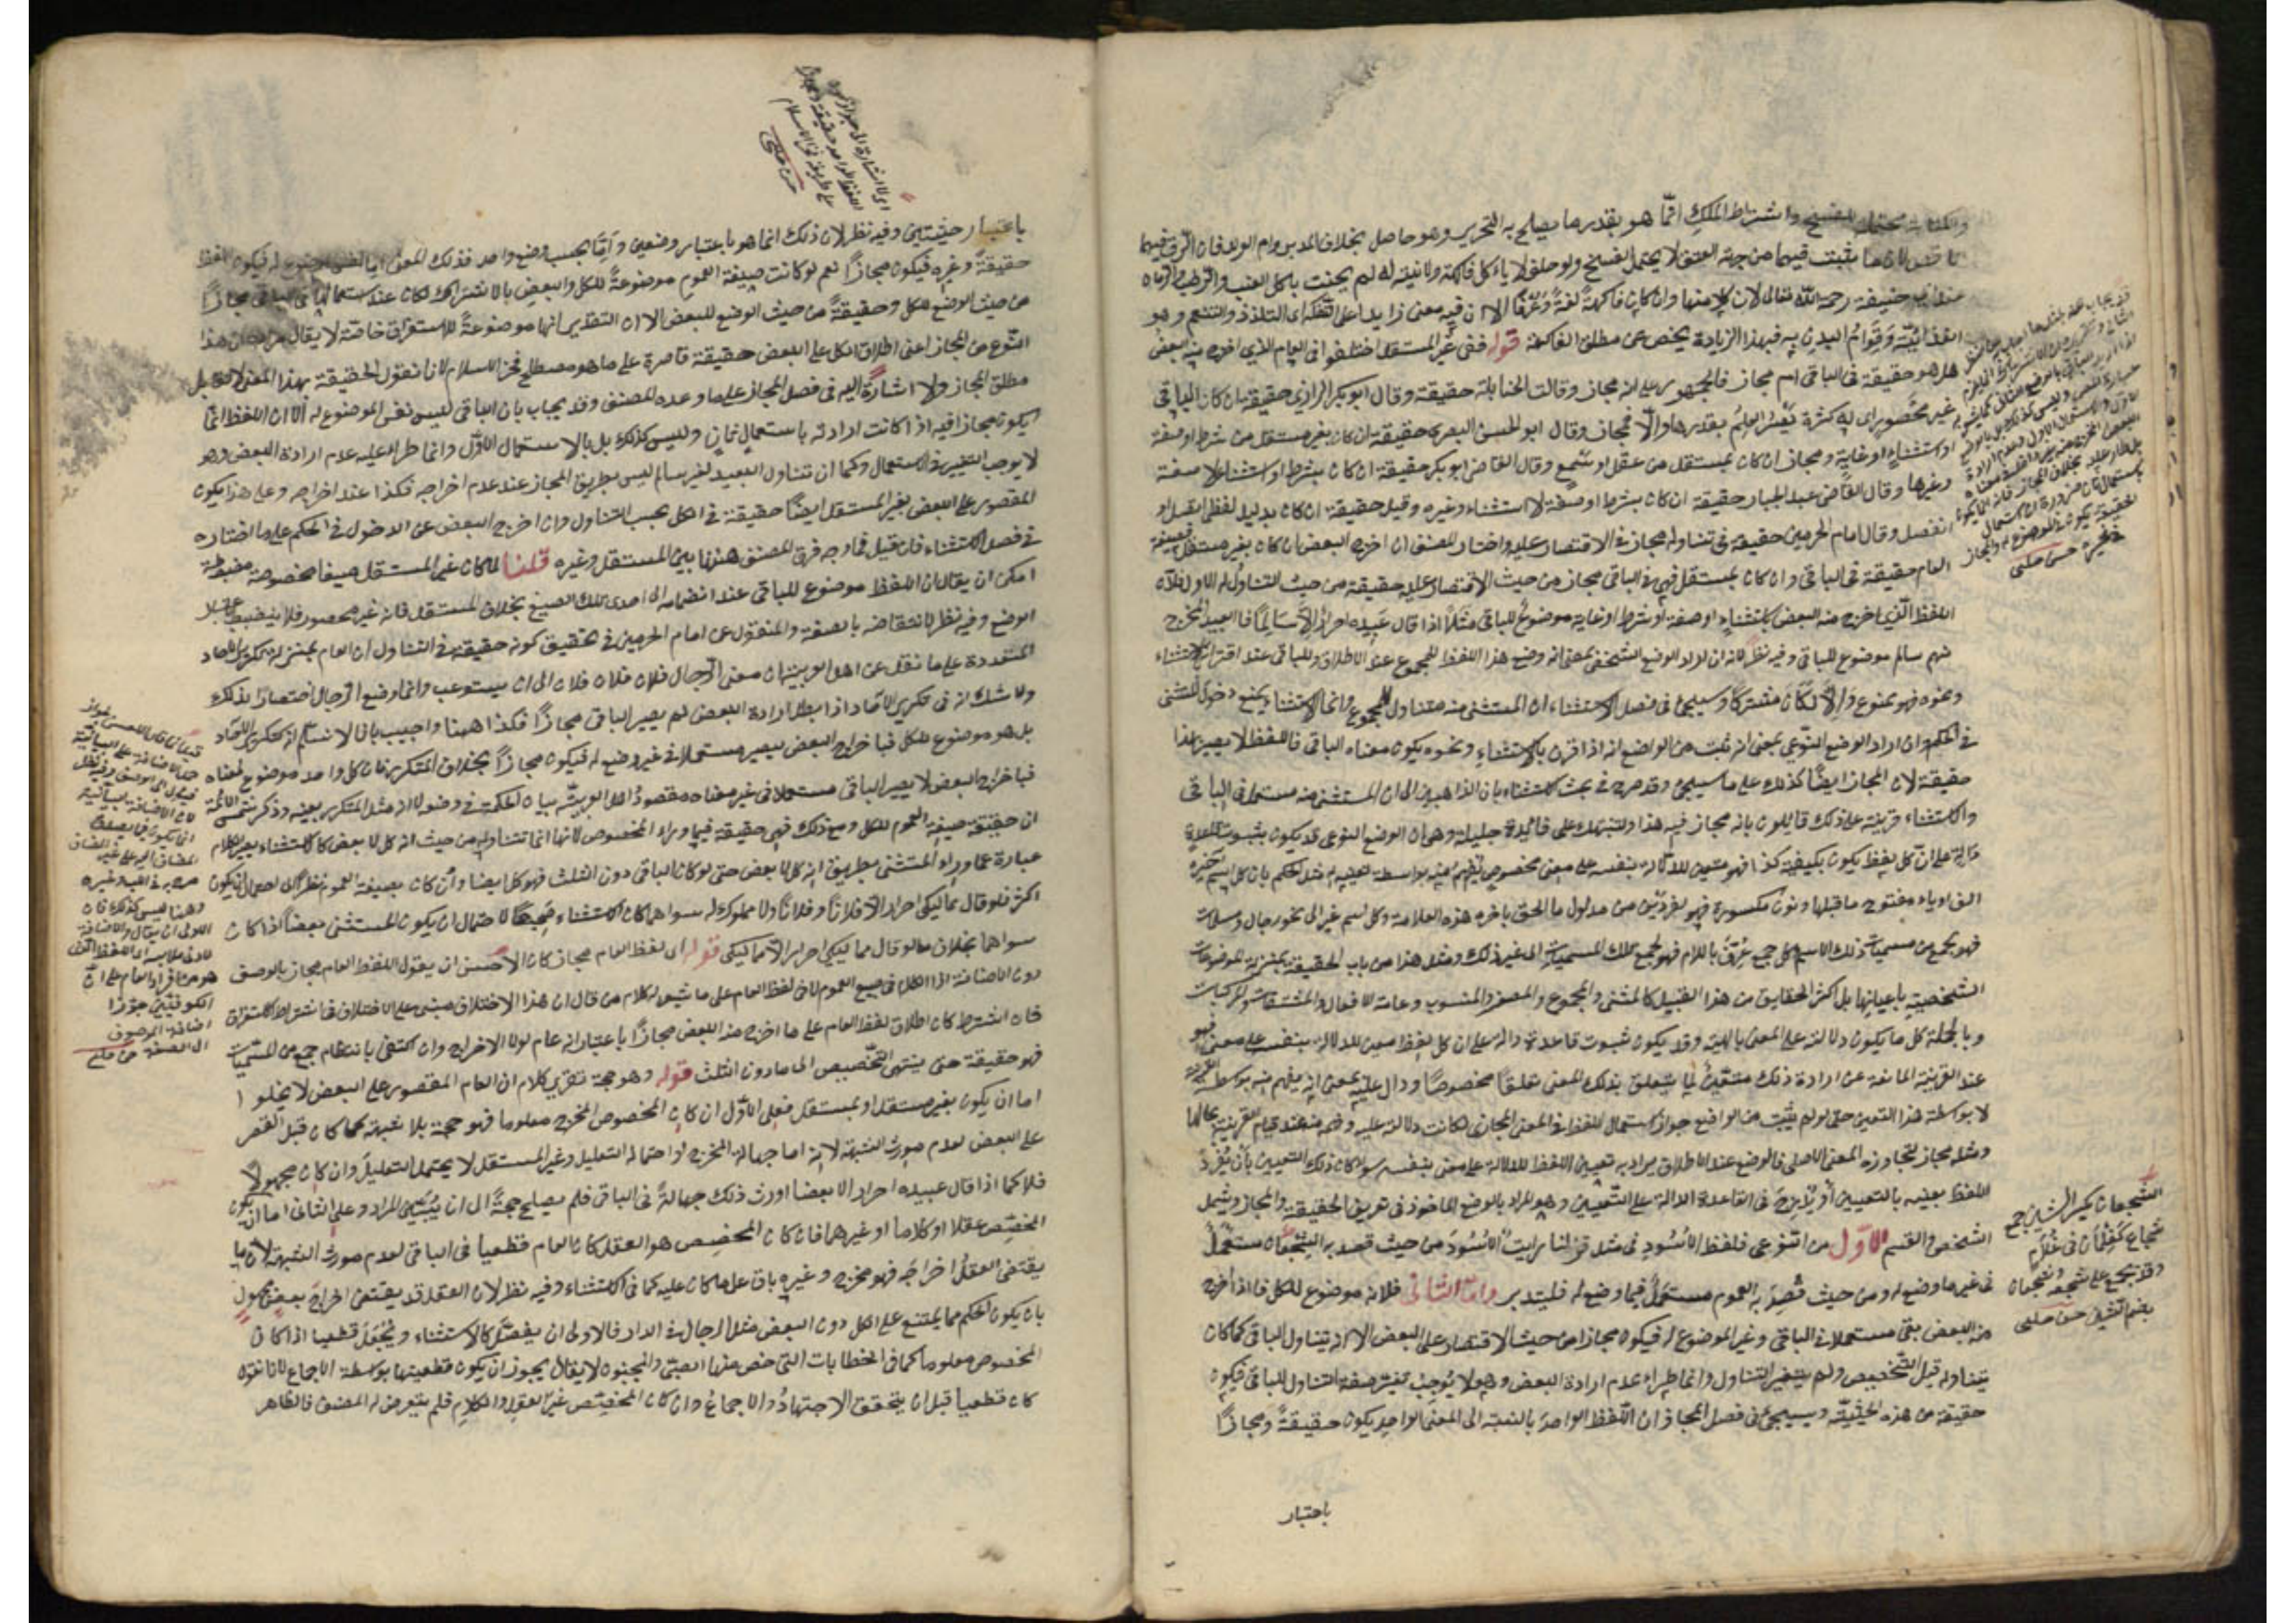 والكتابة محتملة للفسخ واشتراط الملك انما هو بقدر ما يصلح به التحرير وهو حاصل بخلاف المدبر وام الولد فان الرق فيهما
ناقص لان ما يثبت فيهما من جهة العتق لا يحتمل الفسخ ولو حلف لا ياكل فاكهة ولا نية له لم يحنث باكل العنب والرطب والرمان
عند ابى حنيفة رحمه الله تعالى لان كلا منها وان كان فاكهة لغة وعرفا الا ان فيه معنى زايدا على التفكه اى التلذذ والتنعم وهو
الغذائية وقوام البدن به فبهذا الزيادة يخص عن مطلق الفاكهة قوله ففى غير المستقل اختلفوا فى العام الذى اخرج منه البعض
هل هو حقيقة فى الباقى ام مجاز فالجمهور على انه مجاز وقالت الحنابلة حقيقة وقال ابو بكر الرازى حقيقة ان كان الباقى
غير محصور اى له كثرة يعسر العلم بقدرها والا فمجاز وقال ابو الحسين البصرى حقيقة ان كان بغير مستقل من شرط او صفة
او استثناء او غاية ومجاز ان كان بمستقل من عقل او سمع وقال القاضى ابو بكر حقيقة ان كان بشرط او استثناء لا صفة
وغيرها وقال القاضى عبد الجبار حقيقة ان كان بشرط او صفة لا استثناء وغيره وقيل حقيقة ان كان بدليل لفظى اتصل او
انفصل وقال امام الحرمين حقيقة فى تناوله مجاز فى الاقتصار عليه واختار المصنف ان اخرج البعض ان كان بغير مستقل فصيغة
العام حقيقة فى الباقى وان كان بمستقل فهى فى الباقى مجاز من حيث الاقتصار عليه حقيقة من حيث التناول له اما الاول فلان
اللفظ الذى اخرج منه البعض باستثناء او صفة او شرط او غاية موضوع للباقى مثلا اذا قال عبيده احرار الا سالما فالعبيد المخرج
منهم سالم موضوع للباقى وفيه نظر لانه ان اراد الوضع الشخصى بمعنى انه وضع هذا اللفظ للمجموع عند الاطلاق وللباقى عند اقترانه بالاستثناء
ونحوه فهو ممنوع والا لكان مشتركا وسيجئ فى فصل الاستثناء ان المستثنى منه متناول للمجموع وانما الاستثناء يمنع دخول المستثنى
فى الحكم وان اراد الوضع النوعى بمعنى انه ثبت من الواضع انه اذا قرن بالاستثناء ونحوه يكون معناه الباقى فاللفظ لا يصير بهذا
حقيقة لان المجاز ايضا كذلك على ما سيجئ وقد صرح فى بحث الاستثناء بان الذاهبين الى ان المستثنى منه مستعمل فى الباقى
والاستثناء قرينة على ذلك قايلون بانه مجاز فيه هذا ولننبهك على فائدة جليلة وهى ان الوضع النوعى قد يكون بثبوت قاعدة
دالة على ان كل لفظ يكون بكيفية كذا فهو متعين للدلالة بنفسه على معنى مخصوص يفهم منه بواسطة تعينه له مثل الحكم بان كل اسم آخره
الف او ياء مفتوح ما قبلها ونون مكسورة فهو لفردين من مدلول ما الحق باخره هذه العلامة وكل اسم غير الى نحو رجال ومسلمات
فهو لجمع من مسميات ذلك الاسم وكل جمع عرف باللام فهو لجميع تلك المسميات الى غير ذلك ومثل هذا من باب الحقيقة بمنزلة الموضوعات
الشخصية باعيانها بل اكثر الحقايق من هذا القبيل كالمثنى والمجموع والمصغر والمنسوب وعامة الافعال والمشتقات والمركبات
وبالجملة كل ما يكون دلالته على المعنى بالهيئة وقد يكون بثبوت قاعدة دالة على ان كل لفظ معين للدلالة بنفسه على معنى فهو
عند القرينة المانعة عن ارادة ذلك متعين لما يتعلق بذلك المعنى تعلقا مخصوصا ودال عليه بمعنى انه يفهم منه بواسطة القرينة
لا بواسطة هذا التعين حتى لو لم يثبت من الواضع جواز استعمال اللفظ فى المعنى المجازى لكانت دلالته عليه وفهمه منه عند قيام القرينة بحالها
ومثله مجاز لتجاوزه المعنى الاصلى فالوضع عند الاطلاق يراد به تعيين اللفظ للدلالة على معنى بنفسه سواء كان ذلك التعيين بان يفرد
اللفظ بعينه بالتعيين او يدرج فى القاعدة الدالة على التعيين وهو المراد بالوضع الماخوذ فى تعريف الحقيقة والمجاز ويشمل
الشخصى والقسم الاول من النوعى فلفظ الاسود فى مثل قولنا رايت الاسود من حيث قصد به الشجعان مستعمل
فى غير ما وضع له ومن حيث قصد به العموم مستعمل فيما وضع له فليتدبر واما الثانى فلانه موضوع للكل فاذا اخرج
منه البعض بقى مستعملا فى الباقى وغير الموضوع له فيكون مجازا من حيث الاقتصار على البعض الا انه يتناول الباقى كما كان
يتناوله قبل التخصيص ولم يتغير التناول وانما طراء عدم ارادة البعض وهو لا يوجب تغير صفة التناول للباقى فيكون
حقيقة من هذه الحيثية وسيجئ فى فصل المجاز ان اللفظ الواحد بالنسبة الى المعنى الواحد يكون حقيقة ومجازا
باعتبار
الشجعان بكسر الشين جمع
شجاع كغلمان فى غلام
وقد يجمع على شجعة وشجعان
بضم الشين حسن چلبى
باعتبار حيثيتين وفيه نظر لان ذلك انما هو باعتبار وضعين واما بحسب وضع واحد فذلك المعنى اما نفس الموضوع له فيكون اللفظ
حقيقة وغيره فيكون مجازا نعم لو كانت صيغة العموم موضوعة للكل والبعض بالاشتراك لكان عند استعمالها فى الباقى مجازا
من حيث الوضع للكل وحقيقة من حيث الوضع للبعض الا ان التقدير انها موضوعة للاستغراق خاصة لا يقال مراده ان هذا
النوع من المجاز اعنى اطلاق الكل على البعض حقيقة قاصرة على ما هو مصطلح فخر الاسلام لانا نقول الحقيقة بهذا المعنى لا تقابل
مطلق المجاز ولا اشارة اليه فى فصل المجاز على ما وعده المصنف وقد يجاب بان الباقى ليس نفس الموضوع له الا ان اللفظ انما
يكون مجازا فيه اذا كانت ارادته باستعمال ثان وليس كذلك بل بالاستعمال الاول وانما طرا عليه عدم ارادة البعض وهو
لا يوجب التغير فى الاستعمال وكما ان تناول العبيد لغير سالم ليس بطريق المجاز عند عدم اخراجه فكذا عند اخراجه وعلى هذا يكون
المقصور على البعض بغير المستقل ايضا حقيقة فى الكل بحسب التناول وان اخرج البعض عن الدخول فى الحكم على ما اختاره
فى فصل الاستثناء فان قيل فما وجه فرق المصنف ههنا بين المستقل وغيره قلنا لما كان غير المستقل صيغا مخصوصة مضبوطة
امكن ان يقال ان اللفظ موضوع للباقى عند انضمامه الى احدى تلك الصيغ بخلاف المستقل فانه غير محصور فلا ينضبط باعتبار
الوضع وفيه نظر لانتقاضه بالصفة والمنقول عن امام الحرمين فى تحقيق كونه حقيقة فى التناول ان العام بمنزلة تكرير الآحاد
المتعددة على ما نقل عن اهل العربية ان معنى الرجال فلان فلان فلان الى ان يستوعب وانما وضع الرجال اختصارا لذلك
ولا شك انه فى تكرير الآحاد اذا بطل ارادة البعض لم يصير الباقى مجازا فكذا ههنا واجيب بانا لا نسلم انه كتكرير الآحاد
بل هو موضوع للكل فباخراج البعض يصير مستعملا فى غير ما وضع له فيكون مجازا بخلاف المتكرر فان كل واحد موضوع لمعناه
فباخراج البعض لا يصير الباقى مستعملا فى غير معناه ومقصود اهل العربية بيان الحكمة فى وضعه لا انه مثل المتكرر بعينه وذكر شمس الائمة
ان حقيقة صيغة العموم للكل ومع ذلك فهى حقيقة فيما وراء المخصوص لانها انما تتناوله من حيث انه كل لا بعض كالاستثناء يصير الكلام
عبارة عما وراء المستثنى بطريق انه كل لا بعض حتى لو كان الباقى دون الثلث فهو كل ايضا وان كان بصيغة العموم نظرا الى احتمال ان يكون
اكثر فلو قال مماليكى احرار الا فلانا وفلانا ولا مملوك له سواهما كان الاستثناء صحيحا لاحتمال ان يكون المستثنى بعضا اذا كان
سواهما بخلاف ما لو قال مماليكى احرار الا مماليكى قوله اى لفظ العام مجاز كان الاحسن ان يقول اللفظ العام مجاز بالوصف
دون الاضافة اذ الكلام فى صيغ العموم لا فى لفظ العام على ما يشعر به كلام من قال ان هذا الاختلاف مبنى على الاختلاف فى اشتراط الاستغراق
فان اشترط كان اطلاق لفظ العام على ما اخرج منه البعض مجازا باعتبار انه عام لولا الاخراج وان اكتفى بانتظام جمع من المسميات
فهو حقيقة حتى ينتهى التخصيص الى ما دون الثلث قوله وهو حجة تقرير كلام ان العام المقصور على البعض لا يخلو ا
اما ان يكون بغير مستقل او بمستقل فعلى الاول ان كان المخصوص المخرج معلوما فهو حجة بلا شبهة كما كان قبل القصر
على البعض لعدم مورث الشبهة لانه اما جهالة المخرج او احتمال التعليل وغير المستقل لا يحتمل التعليل وان كان مجهولا
فلا كما اذا قال عبيده احرار الا بعضا اورث ذلك جهالة فى الباقى فلم يصلح حجة الى ان يتبين المراد وعلى الثانى اما ان يكون
المخصص عقلا او كلاما او غيرهما فان كان المخصص هو العقل كان العام قطعيا فى الباقى لعدم مورث الشبهة لان ما
يقتضى العقل اخراجه فهو مخرج وغيره باق على ما كان عليه كما فى الاستثناء وفيه نظر لان العقل قد يقتضى اخراج بعض مجهول
بان يكون الحكم مما يمتنع على الكل دون البعض مثل الرجال فى الدار فالاولى ان يفصل كالاستثناء ويجعل قطعيا اذا كان
المخصوص معلوما كما فى الخطابات التى خص منها الصبى والمجنون لا يقال يجوز ان يكون قطعيتها بواسطة الاجماع لانا نقول
كان قطعيا قبل ان يتحقق الاجتهاد والاجماع وان كان المخصص غير العقل والكلام فلم يتعرض له المصنف فالظاهر